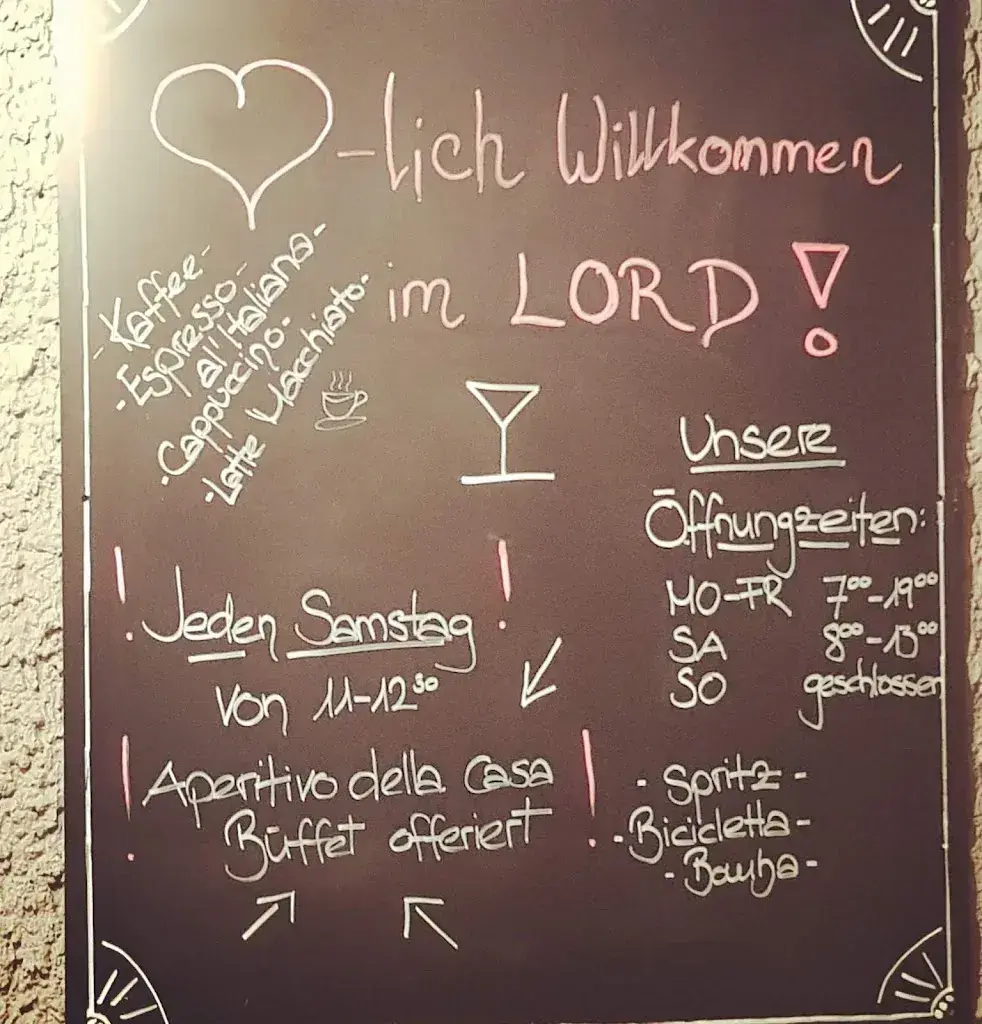 -lich Willkommen
im LORD!
- Kaffee -
· Espresso -
al'Italiana -
· Cappuccino ·
· Latte Macchiato ·
Unsere
Öffnungzeiten:
MO-FR 7⁰⁰-19⁰⁰
SA 8⁰⁰-13⁰⁰
SO geschlossen
! Jeden Samstag !
Von 11-12³⁰
! Aperitivo della Casa !
Büffet offeriert
- Spritz -
- Bicicletta -